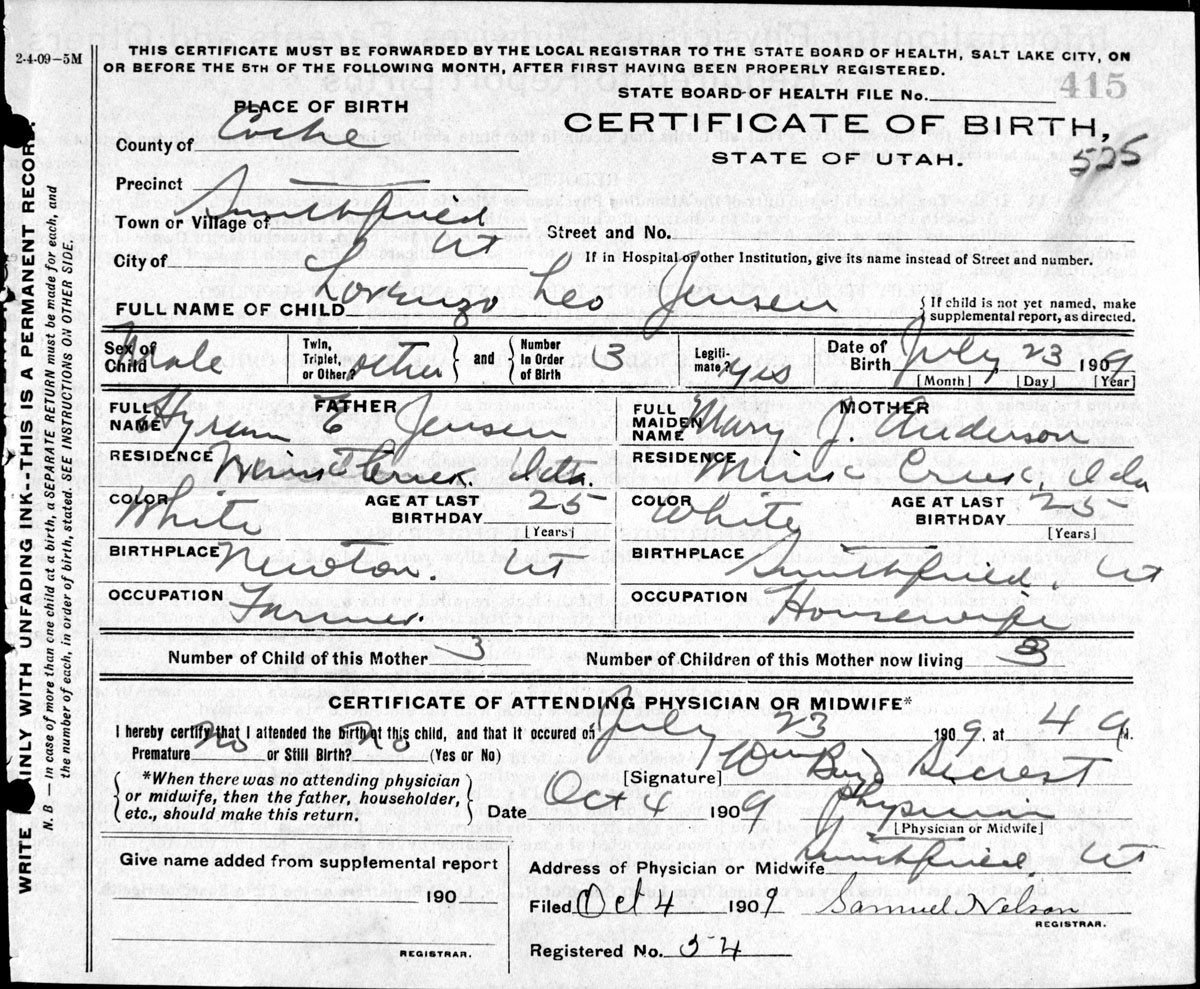 2-4-09-5M
THIS CERTIFICATE MUST BE FORWARDED BY THE LOCAL REGISTRAR TO THE STATE BOARD OF HEALTH, SALT LAKE CITY, ON
OR BEFORE THE 5TH OF THE FOLLOWING MONTH, AFTER FIRST HAVING BEEN PROPERLY REGISTERED.
STATE BOARD OF HEALTH FILE No. 415
PLACE OF BIRTH
CERTIFICATE OF BIRTH,
STATE OF UTAH.
525
County of Cache
Precinct
Town or Village of Smithfield
Street and No.
City of Ut
If in Hospital or other Institution, give its name instead of Street and number.
FULL NAME OF CHILD Lorenzo Leo Jensen
{ If child is not yet named, make
supplemental report, as directed.
Sex of Child Male
Twin, Triplet, or Other? other } and { Number in Order of Birth 3
Legiti-mate? Yes
Date of Birth July 23 1909
[Month] [Day] [Year]
FATHER
FULL NAME Hyrum E Jensen
RESIDENCE Ida.
COLOR White
AGE AT LAST BIRTHDAY 25
[Years]
BIRTHPLACE Newton. Ut
OCCUPATION Farmer.
MOTHER
FULL MAIDEN NAME Mary J. Anderson
RESIDENCE Mink Creek, Ida
COLOR White
AGE AT LAST BIRTHDAY 25
[Years]
BIRTHPLACE Smithfield, Ut
OCCUPATION Housewife
Number of Child of this Mother 3
Number of Children of this Mother now living 3
CERTIFICATE OF ATTENDING PHYSICIAN OR MIDWIFE*
I hereby certify that I attended the birth of this child, and that it occured on July 23 1909, at 4 a M.
Premature No or Still Birth? No (Yes or No)
{ *When there was no attending physician
or midwife, then the father, householder,
etc., should make this return. }
[Signature] Wm Boyd
Date Oct 4 1909
Physician
[Physician or Midwife]
Give name added from supplemental report
190
REGISTRAR.
Address of Physician or Midwife Smithfield, Ut
Filed Oct 4 1909
Samuel Nelson
REGISTRAR.
Registered No. 54
WRITE PLAINLY WITH UNFADING INK--THIS IS A PERMANENT RECORD.
N. B — In case of more than one child at a birth, a SEPARATE RETURN must be made for each, and
the number of each, in order of birth, stated. SEE INSTRUCTIONS ON OTHER SIDE.